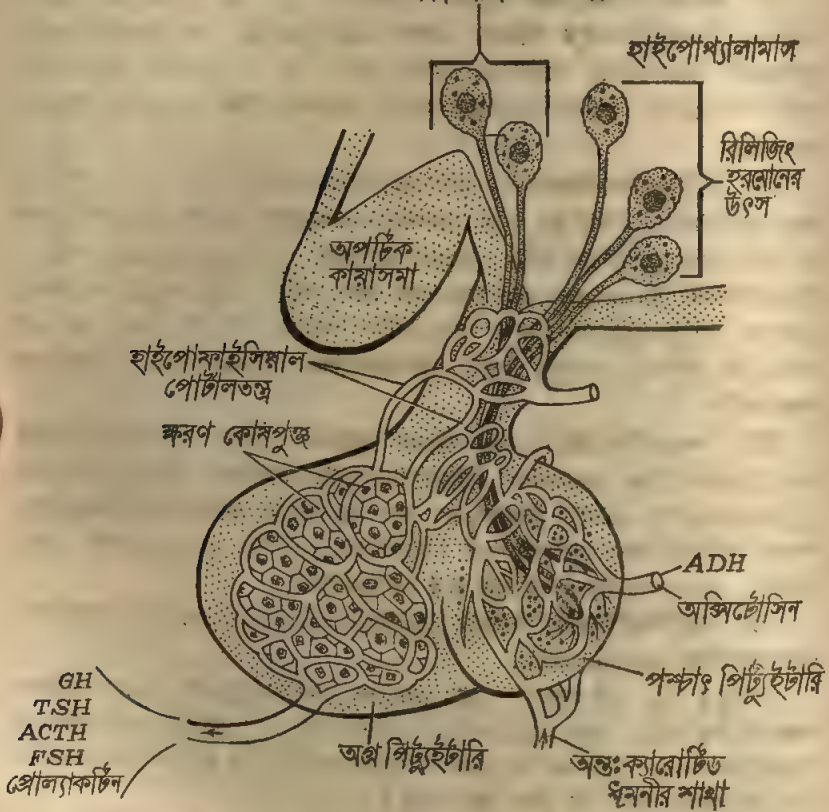 হাইপোথ্যালামাস
রিলিজিং
হরমোনের
উৎস
অপটিক
কায়াসমা
হাইপোফাইসিয়াল
পোর্টালতন্ত্র
ক্ষরণ কোষপুঞ্জ
ADH
অক্সিটোসিন
পশ্চাৎ পিট্যুইটারি
GH
TSH
ACTH
FSH
প্রোল্যাকটিন
অগ্র পিট্যুইটারি
অন্তঃক্যারোটিড
ধমনীর শাখা